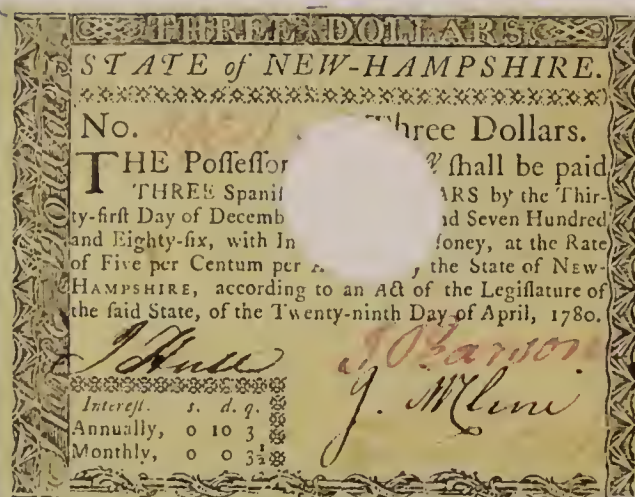 THREE DOLLARS
STATE of NEW-HAMPSHIRE.
No. Three Dollars.
THE Poſſeſſor ſhall be paid
THREE Spaniſ ARS by the Thir-
ty-firſt Day of Decemb nd Seven Hundred
and Eighty-ſix, with In oney, at the Rate
of Five per Centum per y the State of NEW-
HAMPSHIRE, according to an Act of the Legiſlature of
the ſaid State, of the Twenty-ninth Day of April, 1780.
Intereſt. s. d. q.
Annually, 0 10 3
Monthly, 0 0 3½